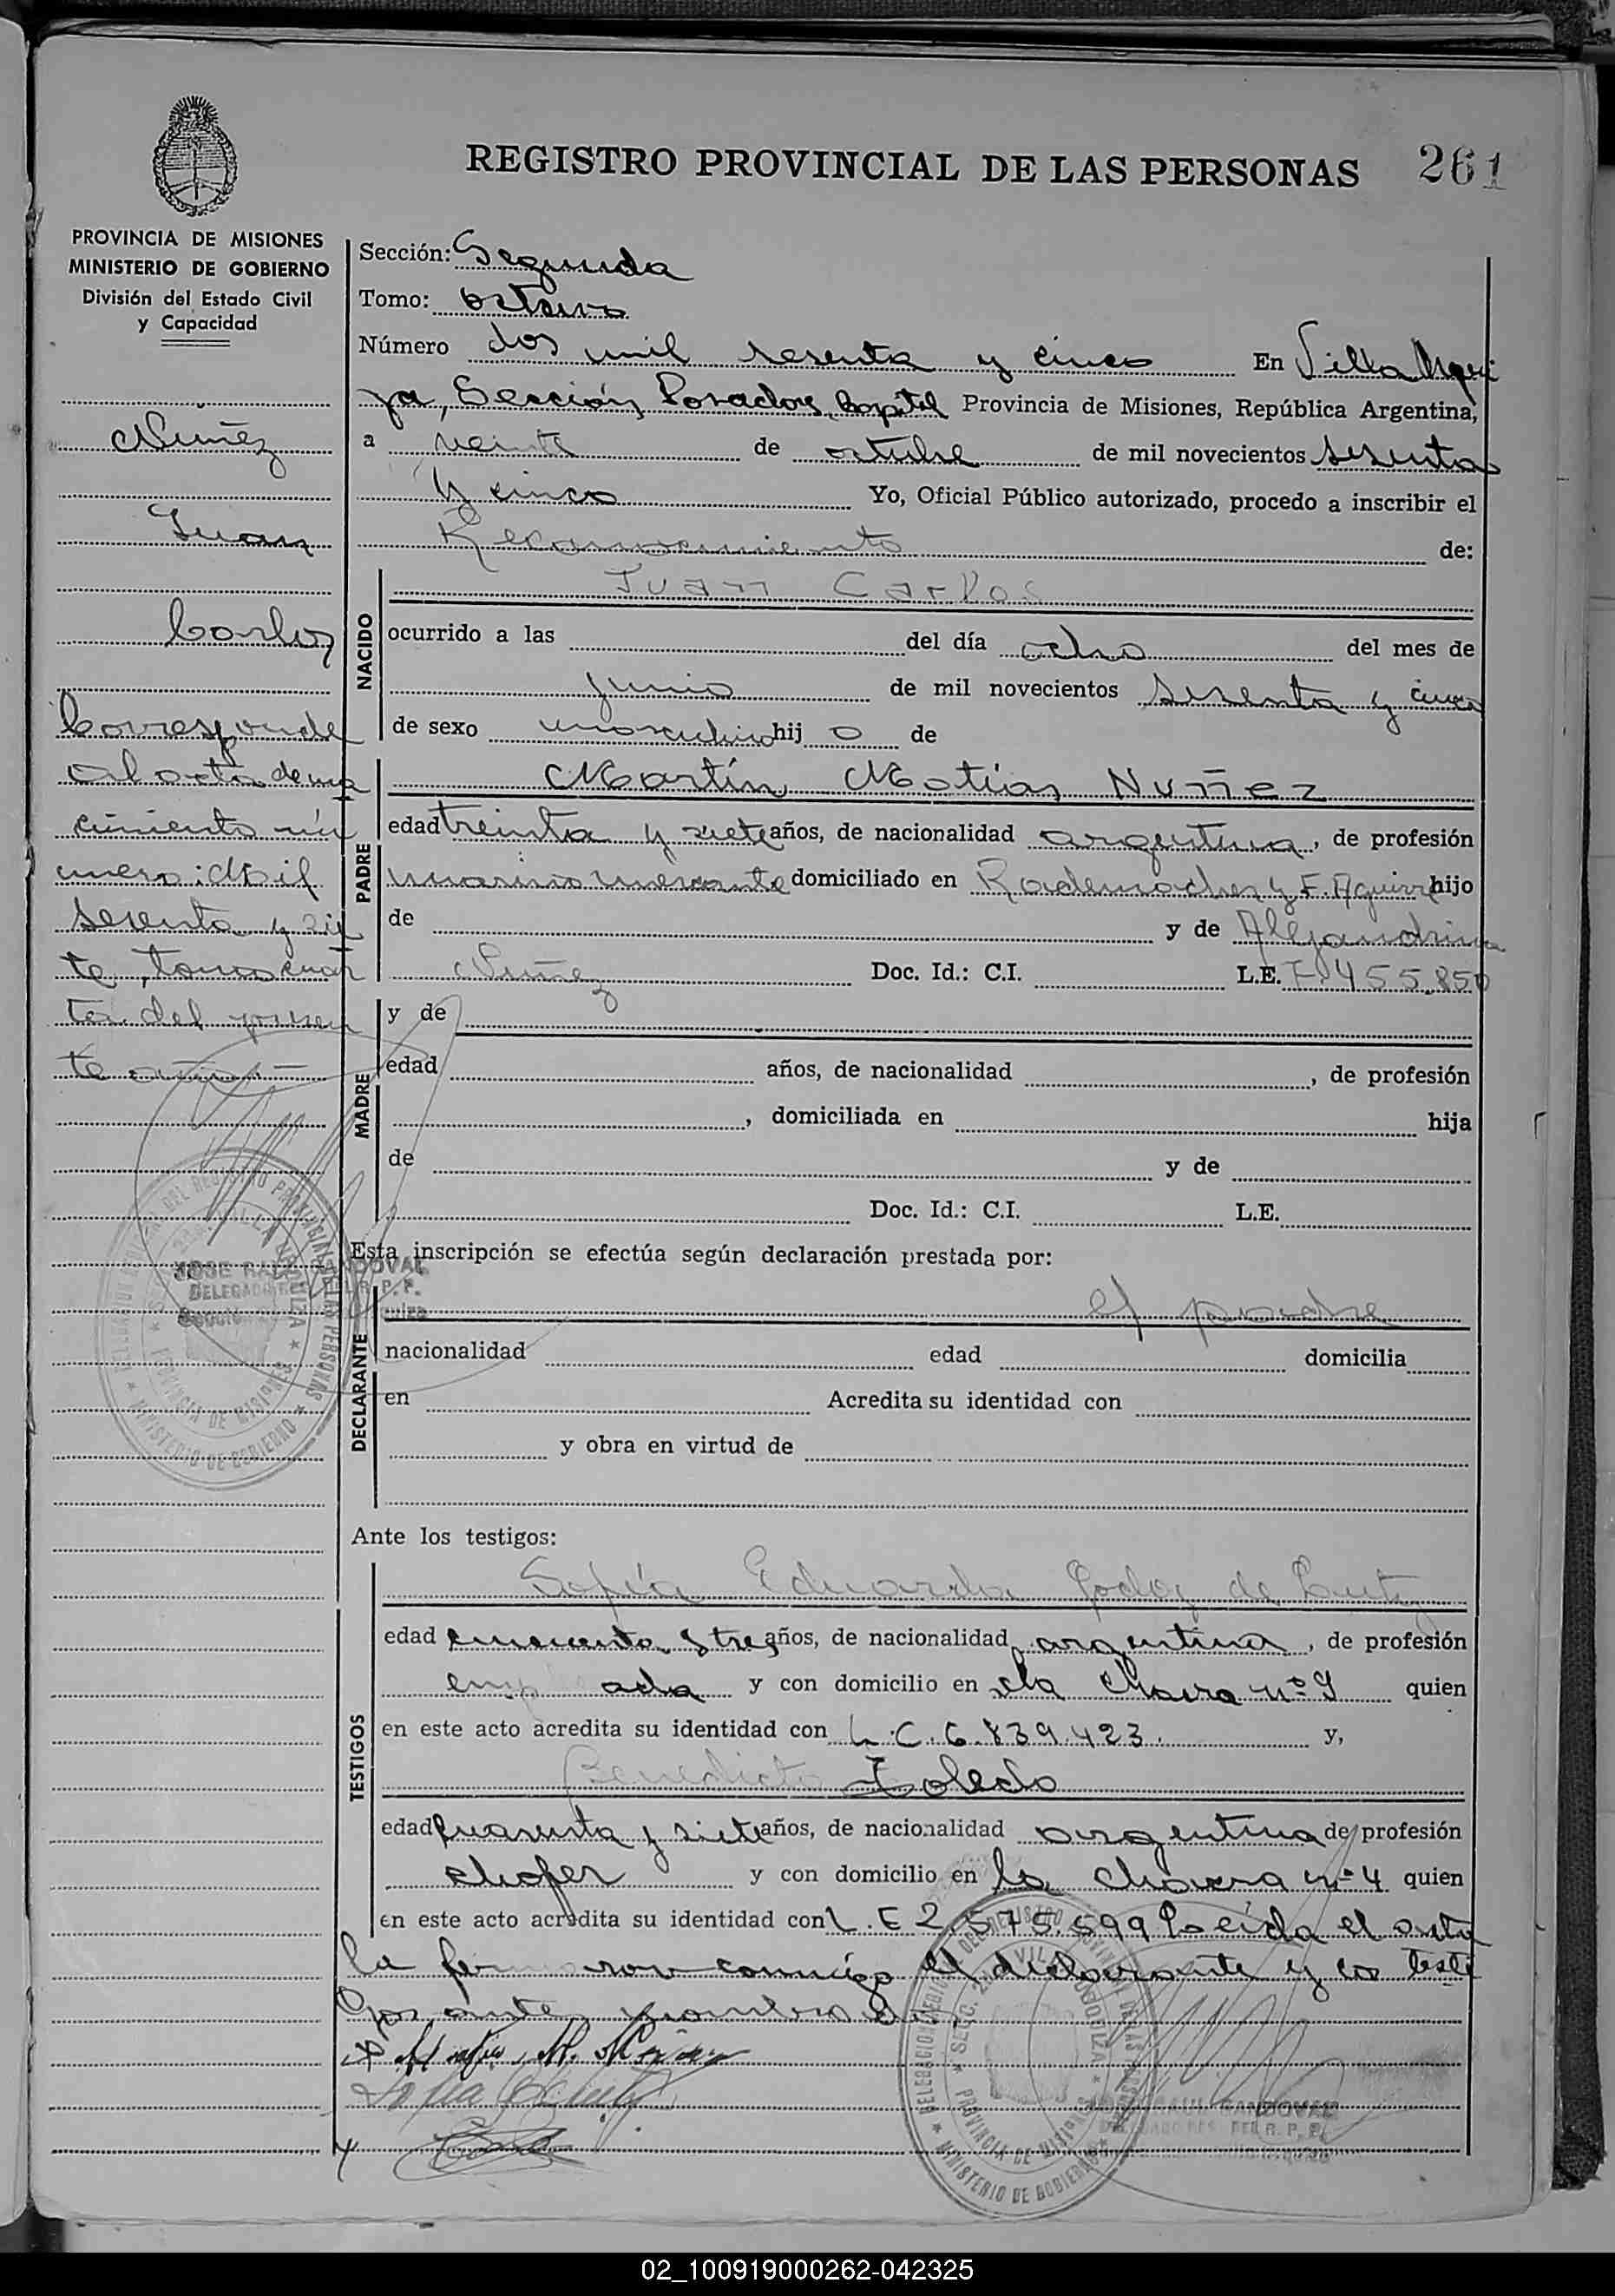 REGISTRO PROVINCIAL DE LAS PERSONAS 261
PROVINCIA DE MISIONES
MINISTERIO DE GOBIERNO
División del Estado Civil
y Capacidad
Nuñez
Juan
Carlos
Corresponde
al acta de na
cimiento nú
mero: Mil
sesenta y sie
te, tomo cuar
to del presen
te año.—
Sección: Segunda
Tomo: octavo
Número dos mil sesenta y cinco En Villa Urqui
za, Sección Posadas Capital Provincia de Misiones, República Argentina,
a veinte de octubre de mil novecientos sesenta
y cinco Yo, Oficial Público autorizado, procedo a inscribir el
Reconocimiento de:
NACIDO
Juan Carlos
ocurrido a las del día ocho del mes de
junio de mil novecientos sesenta y cinco
de sexo masculino hij o de
PADRE
Martín Matías Nuñez
edad treinta y siete años, de nacionalidad argentina, de profesión
marino mercante domiciliado en Rademacher y F. Aguirre hijo
de y de Alejandrina
Nuñez Doc. Id.: C.I. L.E. 7.455.850
MADRE
y de
edad años, de nacionalidad , de profesión
, domiciliada en hija
de y de
Doc. Id.: C.I. L.E.
Esta inscripción se efectúa según declaración prestada por:
DECLARANTE
el padre
nacionalidad edad domicilia
en Acredita su identidad con
y obra en virtud de
Ante los testigos:
TESTIGOS
Sofía Eduarda Godoy de
edad cincuenta y tres años, de nacionalidad argentina, de profesión
empleada y con domicilio en la Chacra nº 9 quien
en este acto acredita su identidad con L.C. 6.839.423. y,
Benedicto Toledo
edad cuarenta y siete años, de nacionalidad argentina de profesión
chofer y con domicilio en la Chacra nº 4 quien
en este acto acredita su identidad con L.E 2.575.599 Leída el acta
la firmaron conmigo el declarante y los testi
gos antes nombrados.
JOSE RAUL SANDOVAL
DELEGADO
R. P. P.
DELEGACION DEL REGISTRO PROVINCIAL DE LAS PERSONAS
MINISTERIO DE GOBIERNO
SECC. 2da. VILLA URQUIZA
PROVINCIA DE MISIONES
RAUL SANDOVAL
R. P. P.
02_100919000262-042325